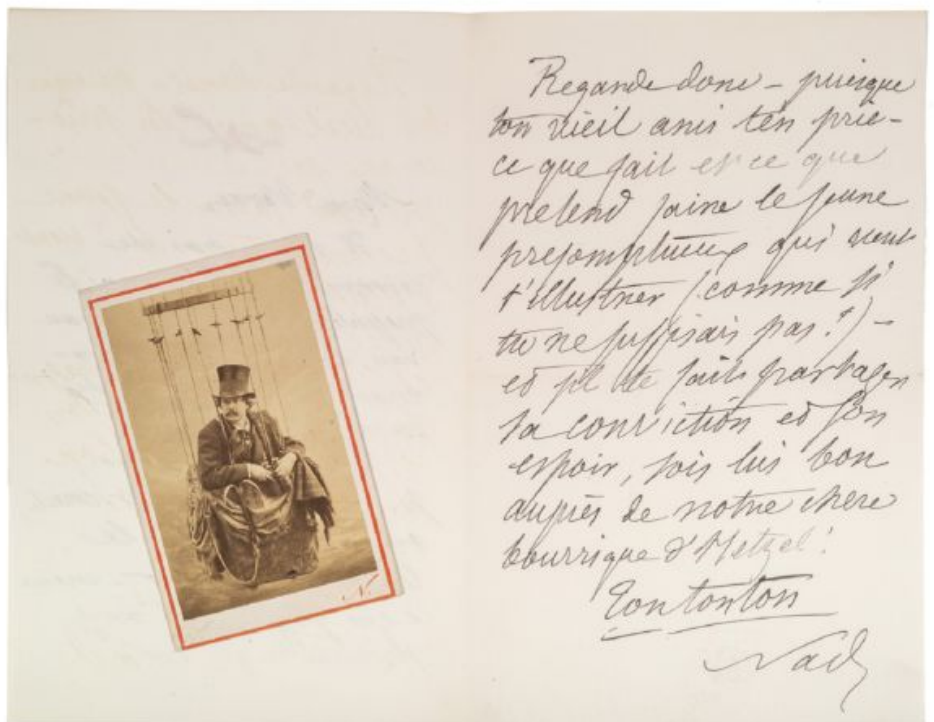 Regarde donc – puisque
ton vieil ami t'en prie –
ce que fait et ce que
prétend faire le jeune
présomptueux qui veut
t'illustrer (comme si
tu ne suffisais pas !) –
et s'il te fait partager
sa conviction et son
espoir, sois lui bon
auprès de notre chere
bourrique d'Hetzel !
Ton tonton
Nad
N.